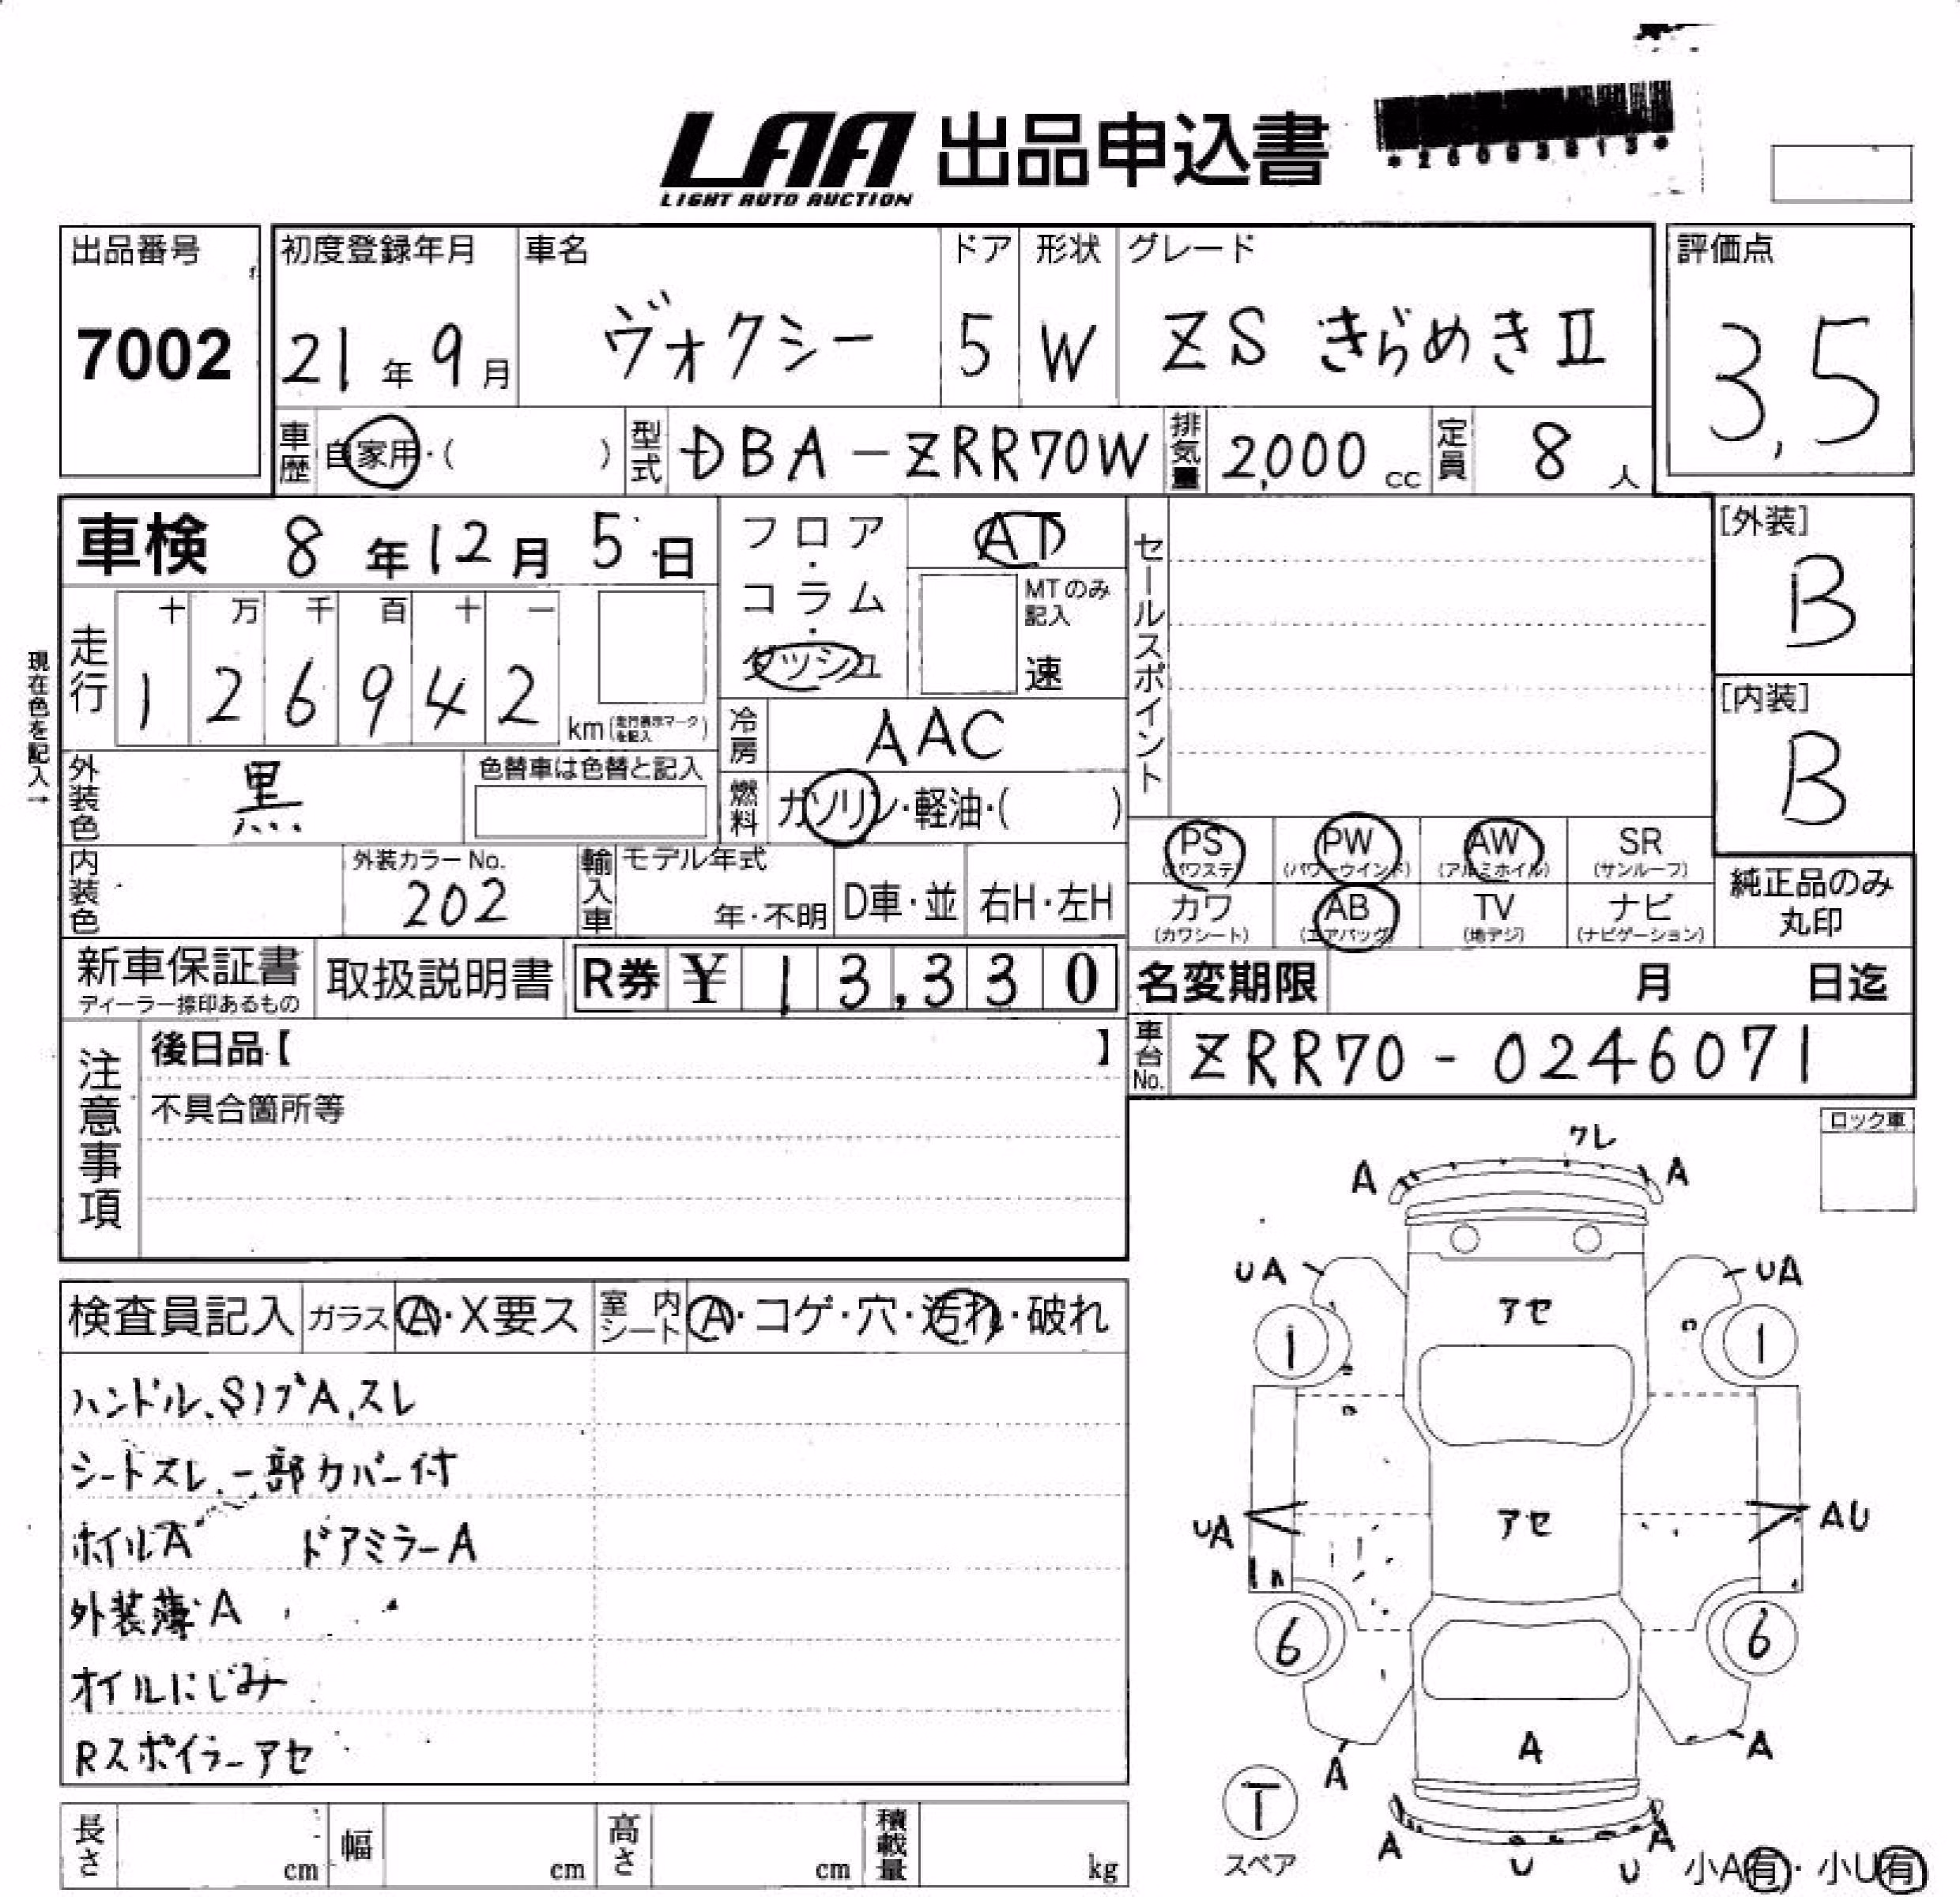 LAA 出品申込書
LIGHT AUTO AUCTION
出品番号
7002
初度登録年月
21年9月
車名
ヴォクシー
ドア
5
形状
W
グレード
ZS きらめきII
評価点
3,5
車歴 自家用・( )
型式 DBA-ZRR70W
排気量 2,000 cc
定員 8人
車検 8年12月5日
走行
十 万 千 百 十 一
1 2 6 9 4 2
km(走行表示マークを記入)
現在色を記入→
外装色 黒
色替車は色替と記入
内装色
外装カラーNo.
202
フロア・コラム・ダッシュ
AT
MTのみ記入
速
冷房 AAC
燃料 ガソリン・軽油・( )
輸入車
モデル年式
年・不明
D車・並
右H・左H
セールスポイント
[外装]
B
[内装]
B
PS (パワステ)
PW (パワーウインド)
AW (アルミホイル)
SR (サンルーフ)
カワ (カワシート)
AB (エアバッグ)
TV (地デジ)
ナビ (ナビゲーション)
純正品のみ丸印
新車保証書
ディーラー捺印あるもの
取扱説明書
R券 ¥13,330
名変期限 月 日迄
車台No. ZRR70-0246071
注意事項
後日品【 】
不具合箇所等
ロック車
検査員記入
ガラス A・X要ス
室内シート A・コゲ・穴・汚れ・破れ
ハンドル、SノブA、スレ
シートスレ、一部カバー付
ホイルA ドアミラーA
外装薄A
オイルにじみ
Rスポイラーアセ
ワレ
A A
UA UA
アセ
1 1
アセ
UA AU
6 6
A A A
T
スペア
A U U A
小A有・小U有
長さ cm
幅 cm
高さ cm
積載量 kg